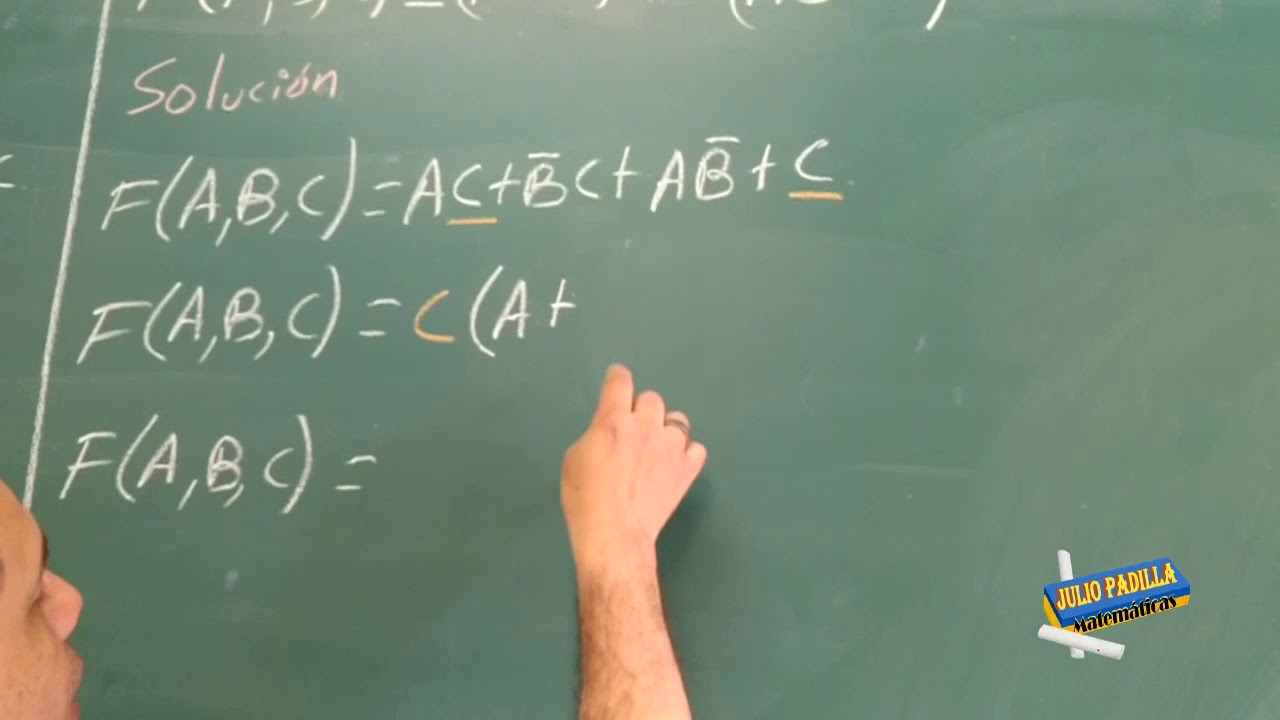 Solución
F(A,B,C)=AC+B̄C+AB̄+C
F(A,B,C)=C(A+
F(A,B,C)=
JULIO PADILLA
Matemáticas